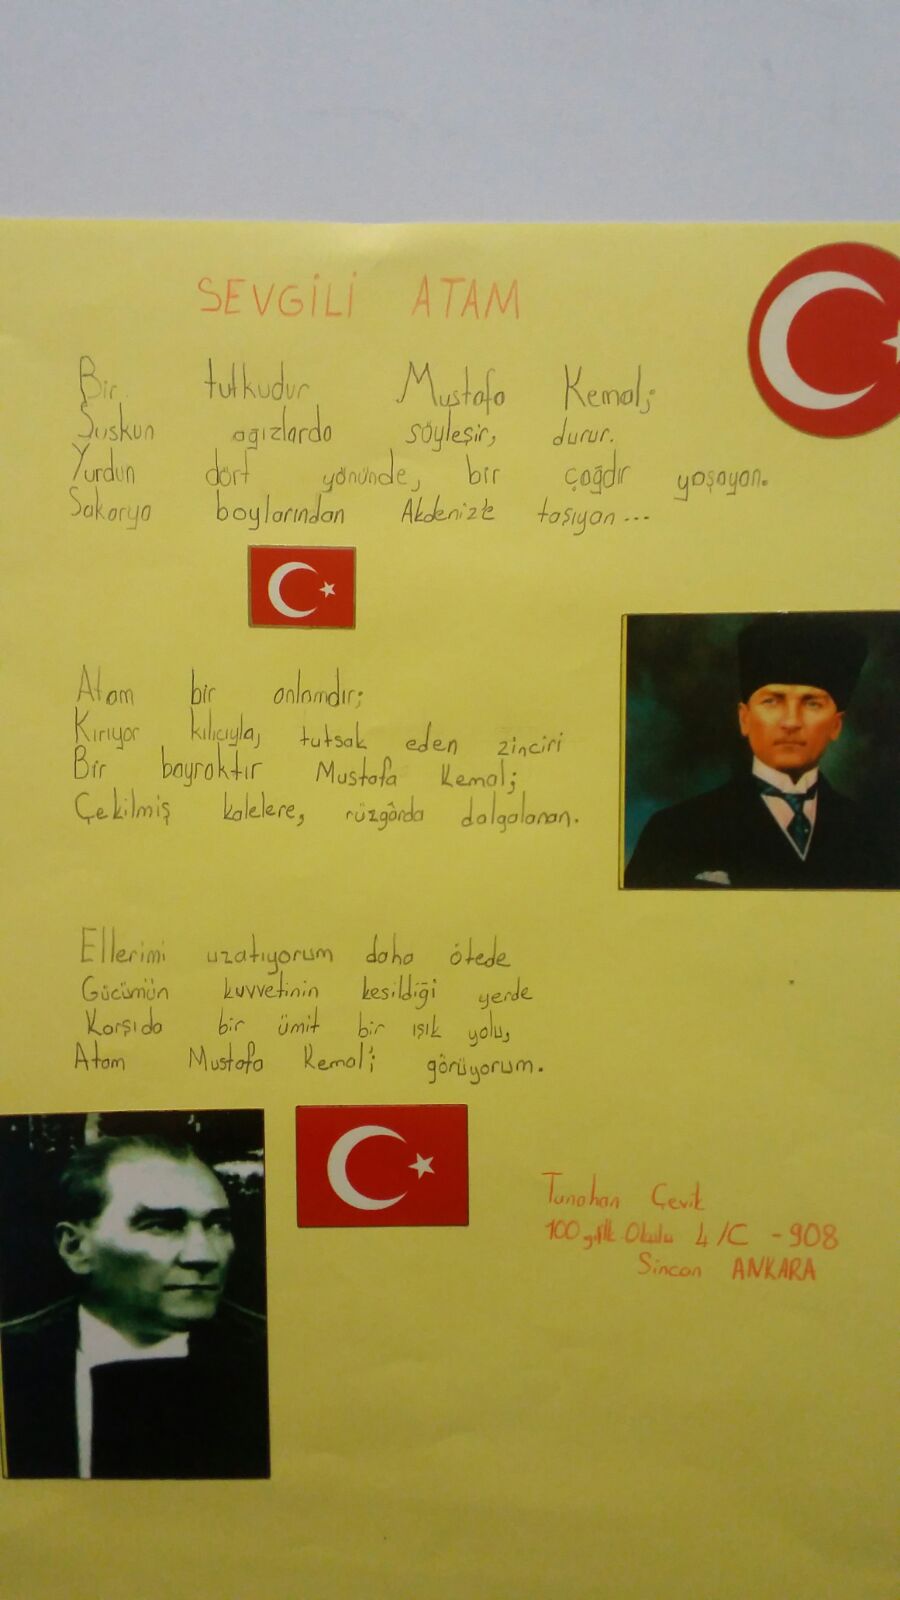 SEVGİLİ ATAM
Bir tutkudur Mustafa Kemal;
Suskun ağızlarda söyleşir, durur.
Yurdun dört yönünde, bir çağdır yaşayan.
Sakarya boylarından Akdeniz'e taşıyan...
Atam bir anlamdır;
Kırıyor kılıcıyla, tutsak eden zinciri
Bir bayraktır Mustafa Kemal;
Çekilmiş kalelere, rüzgârda dalgalanan.
Ellerimi uzatıyorum daha ötede
Gücümün kuvvetinin kesildiği yerde
Karşıda bir ümit bir ışık yolu,
Atam Mustafa Kemal'i görüyorum.
Tunahan Çevik
100.yıl İlk Okulu 4/C - 908
Sincan ANKARA